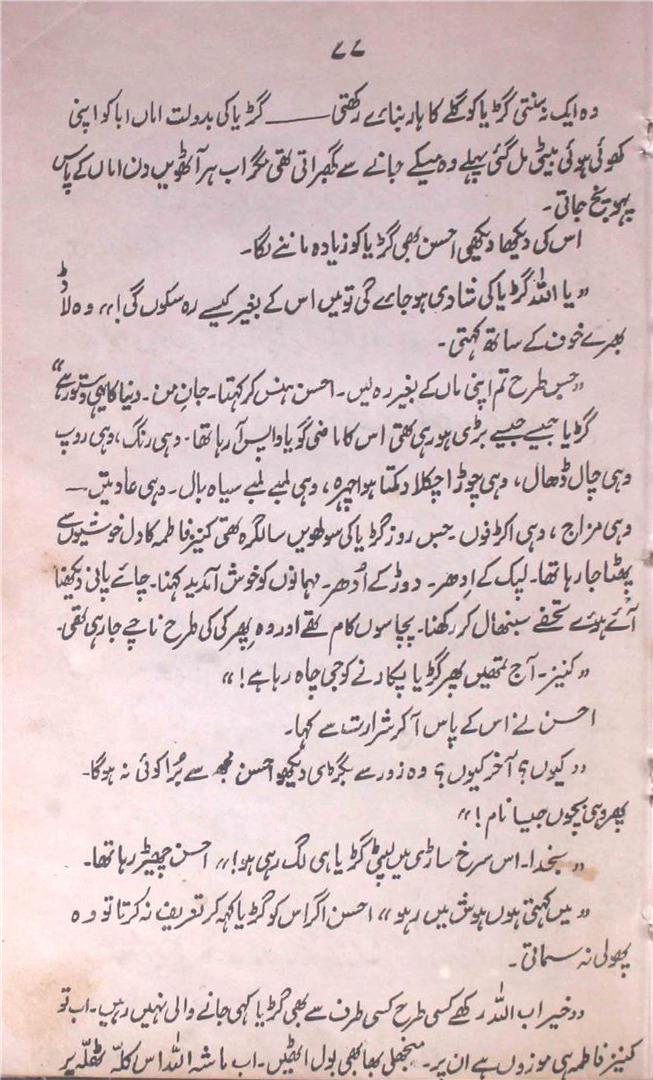 ۷۷
وہ ایک نہ سنتی گڑیا کو گلے کا ہار بنائے رکھتی ــــــ گڑیا کی بدولت اماں ابا کو اپنی
کھوئی ہوئی بیٹی مل گئی پہلے وہ میکے جانے سے گھبراتی تھی مگر اب ہر آٹھویں دن اماں کے پاس
پہونچ جاتی۔
اس کی دیکھا دیکھی احسن بھی گڑیا کو زیادہ ماننے لگا۔
”یا اللہ گڑیا کی شادی ہو جائے گی تو میں اس کے بغیر کیسے رہ سکوں گی!“ وہ لاڈ
بھرے خوف کے ساتھ کہتی۔
”جس طرح تم اپنی ماں کے بغیر رہ لیں۔ احسن ہنس کر کہتا۔ جانِ من۔ دنیا کا یہی دستور ہے“
گڑیا جیسے جیسے بڑی ہو رہی تھی اس کا ماضی گویا واپس آ رہا تھا۔ وہی رنگ، وہی روپ
وہی چال ڈھال، وہی چوڑا چکلا دمکتا ہوا چہرہ، وہی لمبے لمبے سیاہ بال۔ وہی عادتیں ــ
وہی مزاج، وہی اکڑفوں۔ جس روز گڑیا کی سولھویں سالگرہ تھی کنیز فاطمہ کا دل خوشیوں سے
پھٹا جا رہا تھا۔ لپک کے اِدھر۔ دوڑ کے اُدھر۔ مہمانوں کو خوش آمدید کہنا۔ چائے پانی دیکھنا
آئے ہوئے تحفے سنبھال کر رکھنا۔ پچاسوں کام تھے اور وہ پھرکی کی طرح ناچے جا رہی تھی۔
”کنیز۔ آج تمھیں پھر گڑیا پکارنے کو جی چاہ رہا ہے!“
احسن نے اس کے پاس آ کر شرارت سے کہا۔
”کیوں؟ آخر کیوں؟ وہ زور سے بگڑی دیکھو احسن مجھ سے بُرا کوئی نہ ہوگا۔
پھر وہی بچوں جیسا نام!“
”بخدا۔ اس سرخ ساڑی میں لپٹی گڑیا ہی لگ رہی ہو!“ احسن چھیڑ رہا تھا۔
”میں کہتی ہوں ہوش میں رہو“ احسن اگر اس کو گڑیا کہہ کر تعریف نہ کرتا تو وہ
پھولی نہ سماتی۔
”خیر اب اللہ رکھے کسی طرح کسی طرف سے بھی گڑیا کہی جانے والی نہیں رہیں۔ اب تو
کنیز فاطمہ ہی موزوں ہے ان پر۔ منجھلی بھابھی بول اٹھیں۔ اب ماشہ اللہ اس کلّہ ٹھلّہ پر